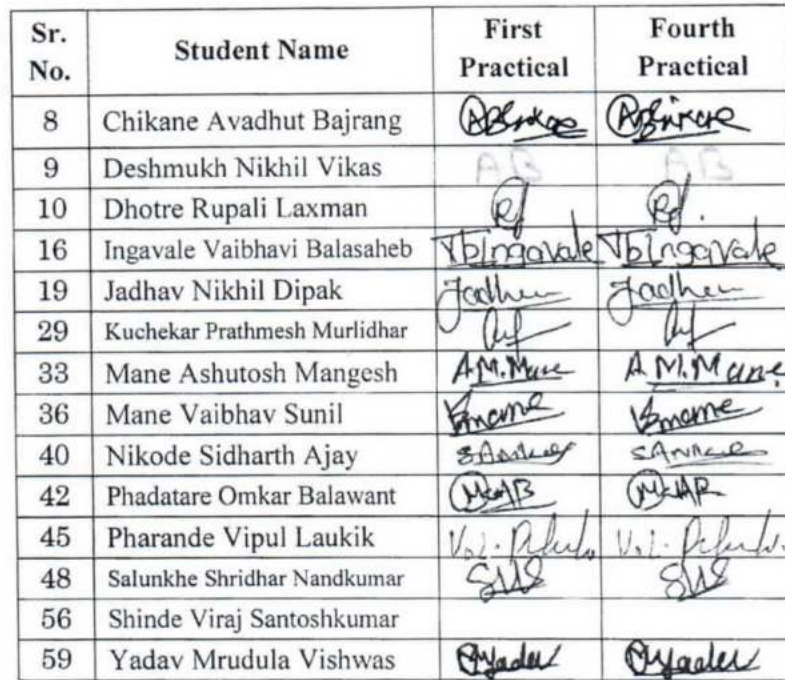 Sr. No. Student Name First Practical Fourth Practical
8 Chikane Avadhut Bajrang
9 Deshmukh Nikhil Vikas AB AB
10 Dhotre Rupali Laxman
16 Ingavale Vaibhavi Balasaheb VbIngavale VbIngavale
19 Jadhav Nikhil Dipak Jadhav Jadhav
29 Kuchekar Prathmesh Murlidhar
33 Mane Ashutosh Mangesh A.M.Mane A.M.Mane
36 Mane Vaibhav Sunil Vsmane Vsmane
40 Nikode Sidharth Ajay
42 Phadatare Omkar Balawant
45 Pharande Vipul Laukik
48 Salunkhe Shridhar Nandkumar SNS SNS
56 Shinde Viraj Santoshkumar
59 Yadav Mrudula Vishwas